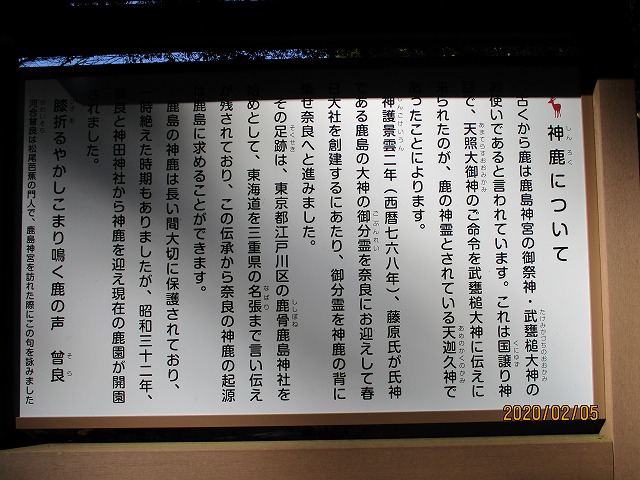 神鹿について
古くから鹿は鹿島神宮の御祭神・武甕槌大神の
使いであると言われています。これは国譲り神
で、天照大御神のご命令を武甕槌大神に伝えに
来られたのが、鹿の神霊とされている天迦久神で
あったことによります。
神護景雲二年(西暦七六八年)、藤原氏が氏神
である鹿島の大神の御分霊を奈良にお迎えして春
日大社を創建するにあたり、御分霊を神鹿の背に
乗せ奈良へと進みました。
その足跡は、東京都江戸川区の鹿骨鹿島神社を
始めとして、東海道を三重県の名張まで言い伝え
が残されており、この伝承から奈良の神鹿の起源
は鹿島に求めることができます。
鹿島の神鹿は長い間大切に保護されており、
一時絶えた時期もありましたが、昭和三十二年、
奈良と神田神社から神鹿を迎え現在の鹿園が開園
されました。
膝折るやかしこまり鳴く鹿の声 曾良
河合曾良は松尾芭蕉の門人で、鹿島神宮を訪れた際にこの句を詠みました
2020/02/05